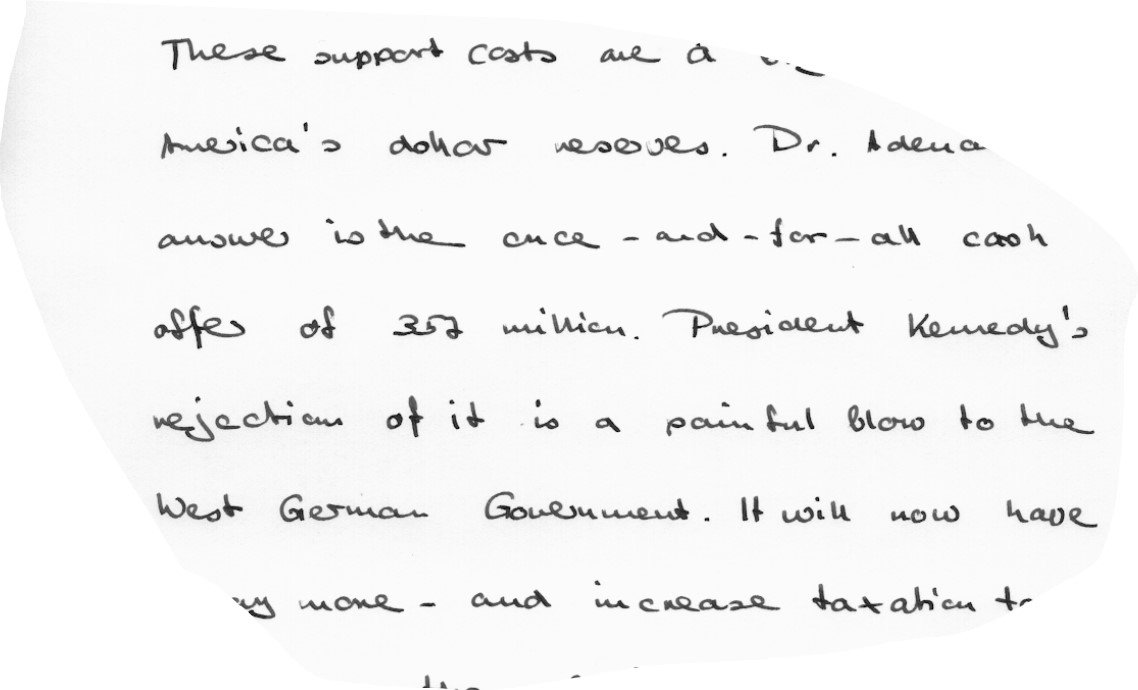 These support costs are a
America's dollar reserves. Dr. Adena
answer is the once-and-for-all cash
offer of 357 million. President Kennedy's
rejection of it is a painful blow to the
West German Government. It will now have
more - and increase taxation to
the